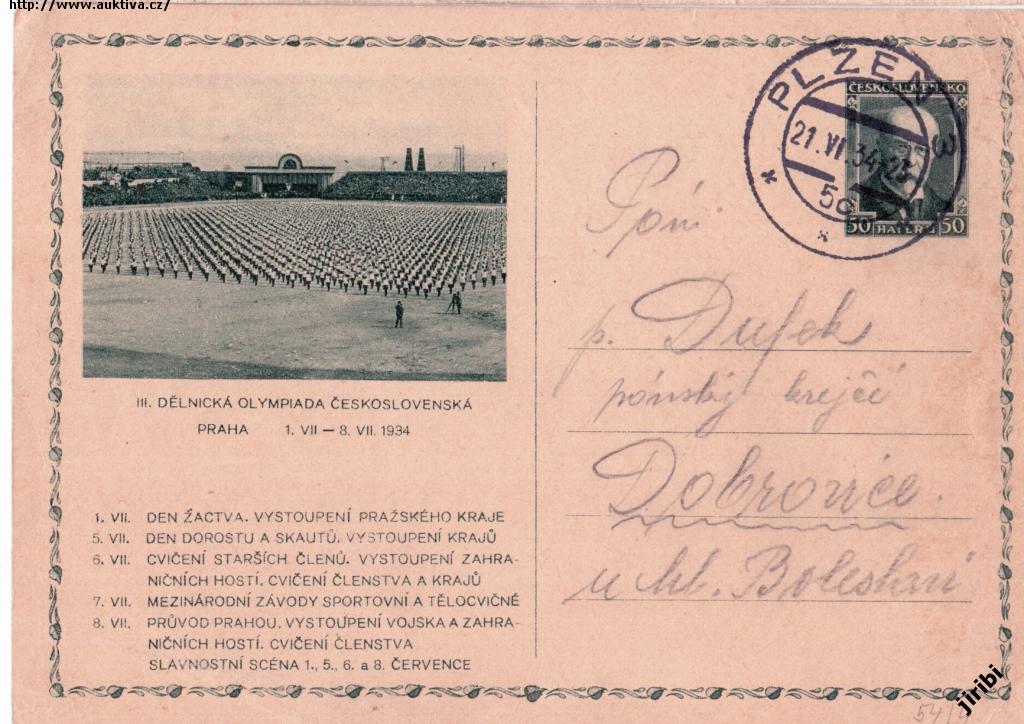 http://www.auktiva.cz/
III. DĚLNICKÁ OLYMPIADA ČESKOSLOVENSKÁ
PRAHA 1. VII — 8. VII. 1934
1. VII. DEN ŽACTVA. VYSTOUPENÍ PRAŽSKÉHO KRAJE
5. VII. DEN DOROSTU A SKAUTŮ. VYSTOUPENÍ KRAJŮ
6. VII. CVIČENÍ STARŠÍCH ČLENŮ. VYSTOUPENÍ ZAHRA-
NIČNÍCH HOSTÍ. CVIČENÍ ČLENSTVA A KRAJŮ
7. VII. MEZINÁRODNÍ ZÁVODY SPORTOVNÍ A TĚLOCVIČNÉ
8. VII. PRŮVOD PRAHOU. VYSTOUPENÍ VOJSKA A ZAHRA-
NIČNÍCH HOSTÍ. CVIČENÍ ČLENSTVA
SLAVNOSTNÍ SCÉNA 1., 5., 6. a 8. ČERVENCE
PLZEŇ 3
21.VI.34
ČESKOSLOVENSKO
50 HALÉŘŮ 50
p. Dufek
pánský krejčí
Dobrovice.
u Ml. Boleslavi
54
jiribi